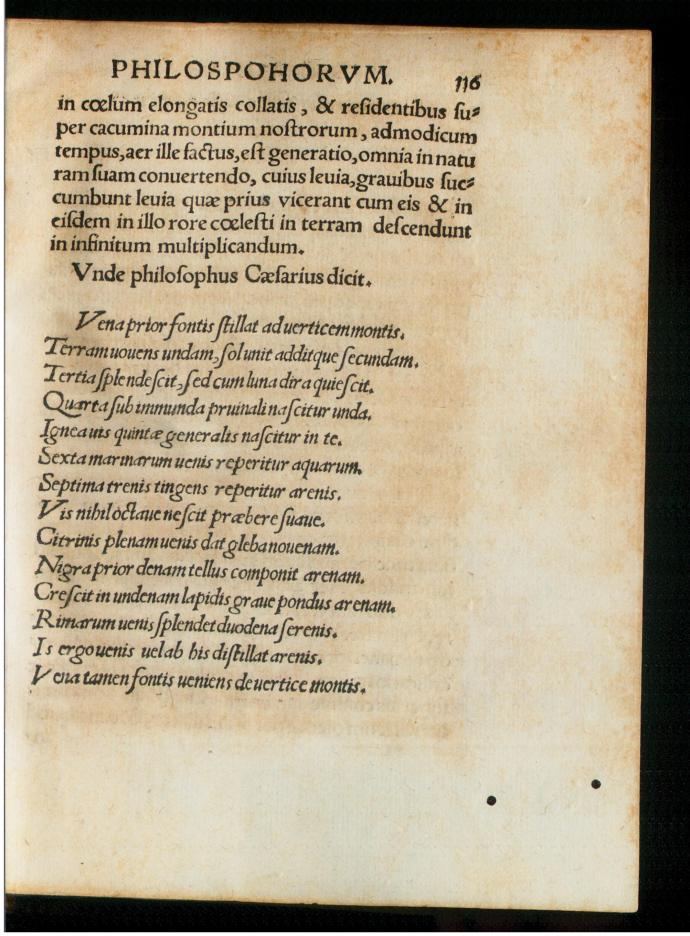 PHILOSPOHORVM. 116
in cœlum elongatis collatis, & reſidentibus ſu⸗
per cacumina montium noſtrorum, admodicum
tempus, aer ille factus, eſt generatio, omnia in natu
ram ſuam conuertendo, cuius leuia, grauibus ſuc⸗
cumbunt leuia quæ prius vicerant cum eis & in
eiſdem in illo rore cœleſti in terram deſcendunt
in infinitum multiplicandum.
Vnde philoſophus Cæſarius dicit.
Vena prior fontis ſtillat ad uerticem montis.
Terram uouens undam, ſol unit additque ſecundam.
Tertia ſplendeſcit, ſed cum luna dira quieſcit.
Quarta ſub immunda pruinali naſcitur unda.
Ignea uis quintæ generalis naſcitur in te.
Sexta marmarum uenis reperitur aquarum.
Septima trenis tingens reperitur arenis.
Vis nihil octaue neſcit præbere ſuaue.
Citrinis plenam uenis dat gleba nouenam.
Nigra prior denam tellus componit arenam.
Creſcit in undenam lapidis graue pondus arenam.
Rimarum uenis ſplendet duodena ſerenis.
Is ergo uenis uel ab his diſtillat arenis.
Vena tamen fontis ueniens de uertice montis.